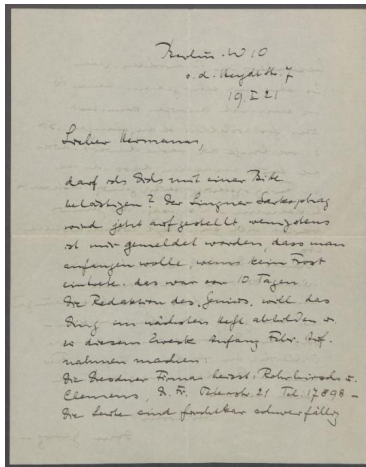 Berlin. W 10
v. d. Heydtstr. 7
19. I 21
Lieber Hermann,
darf ich Dich mit einer Bitte
belästigen? Der Lingner Sarkophag
wird jetzt aufgestellt, wenigstens
ist mir gemeldet worden, dass man
anfangen wolle, wenn kein Frost
eintrete. das war vor 10 Tagen
Die Redaktion des "Genius" will das
Ding im nächsten Heft abbilden u
zu diesem Zweck Anfang Febr. Auf-
nahmen machen.
Die Dresdner Firma heisst: u.
Clemens, D. Fr. 21 Tel. 17898 –
Die Leute sind furchtbar schwerfällig